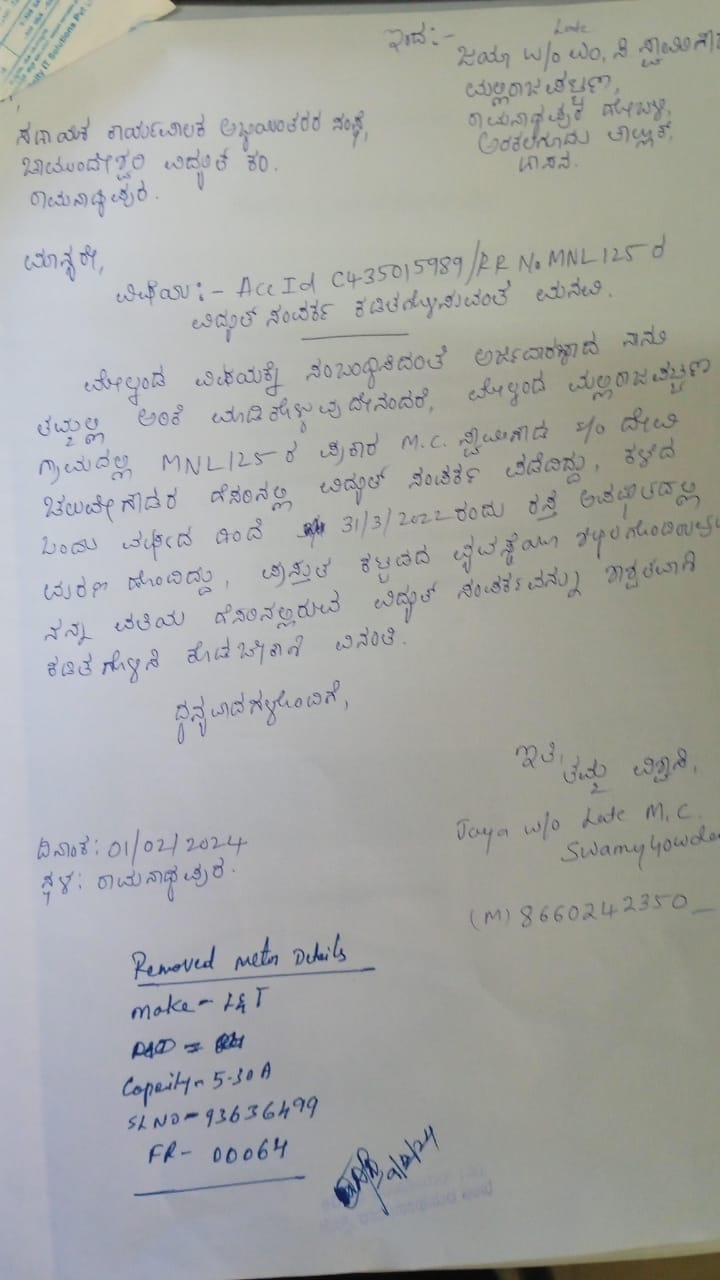 ity IT Solutions Pvt
ಇಂದ:-
Late
ಜಯಾ W/o ಎಂ, ಸಿ ಸ್ವಾಮಿಗೌಡ
ಮಲ್ಲರಾಜಪಟ್ಟಣ,
ರಾಮನಾಥಪುರ ಹೋಬಳಿ,
ಅರಕಲಗೂಡು ತಾಲ್ಲೂಕ್,
ಹಾಸನ.
ಸಹಾಯಕ ಕಾರ್ಯಪಾಲಕ ಅಭಿಯಂತರರ ಸಂಸ್ಥೆ,
ಚಾಮುಂಡೇಶ್ವರಿ ವಿದ್ಯುತ್ ಕಂ.
ರಾಮನಾಥಪುರ.
ಮಾನ್ಯರೇ,
ವಿಷಯ:- Acc Id C435015989/RR No MNL125 ರ
ವಿದ್ಯುತ್ ಸಂಪರ್ಕ ಕಡಿತಗೊಳಿಸುವಂತೆ ಮನವಿ.
ಮೇಲ್ಕಂಡ ವಿಷಯಕ್ಕೆ ಸಂಬಂಧಿಸಿದಂತೆ ಅರ್ಜಿದಾರಳಾದ ನಾನು
ತಮ್ಮಲ್ಲಿ ಅರಿಕೆ ಮಾಡಿಕೊಳ್ಳುವುದೇನಂದರೆ, ಮೇಲ್ಕಂಡ ಮಲ್ಲರಾಜಪಟ್ಟಣ
ಗ್ರಾಮದಲ್ಲಿ MNL125 ರ ಪ್ರಕಾರ M.C. ಸ್ವಾಮಿಗೌಡ S/o ದೇವಿ
ಚಲುವೇಗೌಡರ ಹೆಸರಿನಲ್ಲಿ ವಿದ್ಯುತ್ ಸಂಪರ್ಕ ಪಡೆದಿದ್ದು, ಕಳೆದ
ಒಂದು ವರ್ಷದ ಹಿಂದೆ 31/3/2022 ರಂದು ರಸ್ತೆ ಅಪಘಾತದಲ್ಲಿ
ಮರಣ ಹೊಂದಿದ್ದು, ಪ್ರಸ್ತುತ ಕಟ್ಟಡದ ವ್ಯವಸ್ಥೆಯೂ
ನನ್ನ ಪತಿಯ ಹೆಸರಿನಲ್ಲಿರುವ ವಿದ್ಯುತ್ ಸಂಪರ್ಕವನ್ನು ಶಾಶ್ವತವಾಗಿ
ಕಡಿತಗೊಳಿಸಿ ಕೊಡಬೇಕಾಗಿ ವಿನಂತಿ.
ಧನ್ಯವಾದಗಳೊಂದಿಗೆ,
ಇತಿ,
ತಮ್ಮ ವಿಶ್ವಾಸಿ,
Jaya w/o Late M.C.
Swamy Gowda
(M) 8660242350
ದಿನಾಂಕ: 01/02/2024
ಸ್ಥಳ: ರಾಮನಾಥಪುರ.
Removed meter Details
make - L&T
Capacity - 5-30A
SL NO - 93636499
FR - 00064